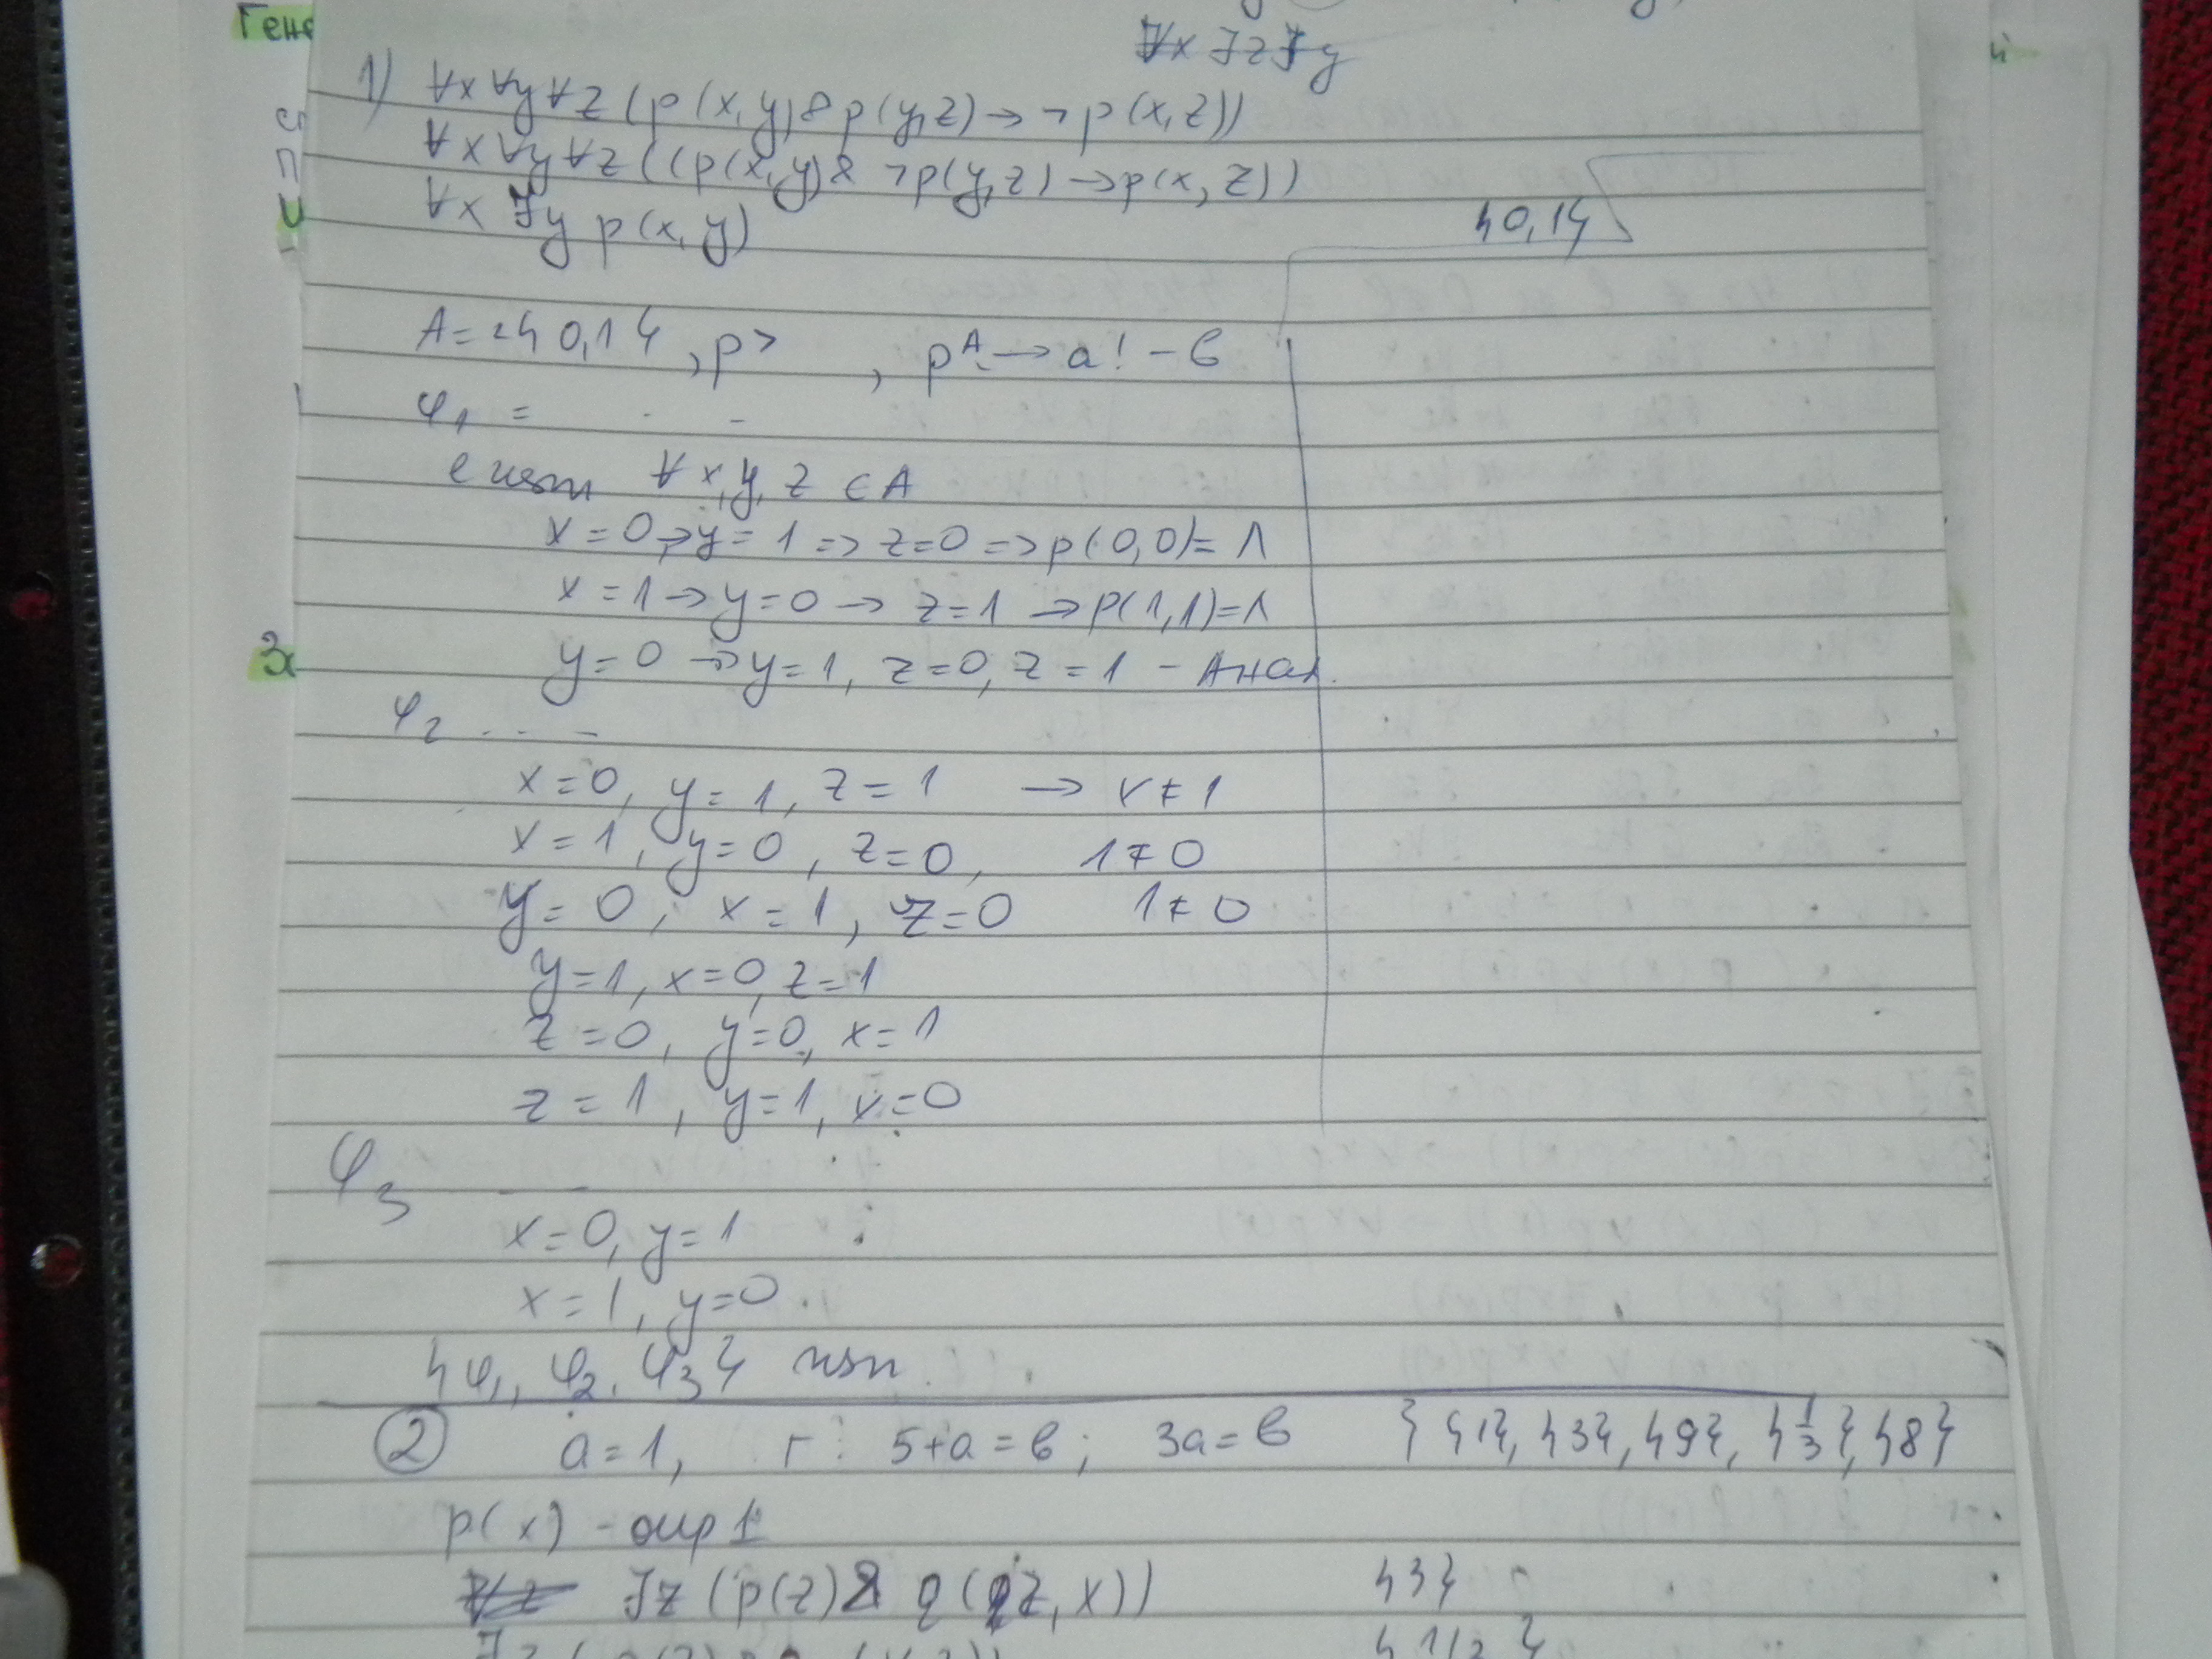 Гене
∀x ∃z ∃y
1) ∀x ∀y ∀z (p(x,y) & p(y,z) → ¬p(x,z))
∀x ∀y ∀z ((p(x,y) & ¬p(y,z) → p(x,z))
∀x ∃y p(x,y)
{0,1}
A = <{0,1}, p> , pᴬ → a! – b
φ1 = . . –
е изп ∀ x,y,z ∈ A
x = 0 → y = 1 => z=0 => p(0,0) = Λ
x = 1 → y=0 → z=1 → p(1,1)=Λ
y=0 → y=1, z=0, z=1 – Анал.
φ2 . . . –
x=0, y=1, z=1 → x≠1
x=1, y=0, z=0, 1≠0
y=0, x=1, z=0 1≠0
y=1, x=0, z=1
z=0, y=0, x=1
z=1, y=1, x=0
φ3
x=0, y=1
x=1, y=0
{φ1, φ2, φ3} изп.
② a=1, г: 5+a=b; 3a=b } {1}, {3}, {9}, {1/3}, {8}
p(x) – опр 1
∃z (p(z) & q(z,x)) {3}